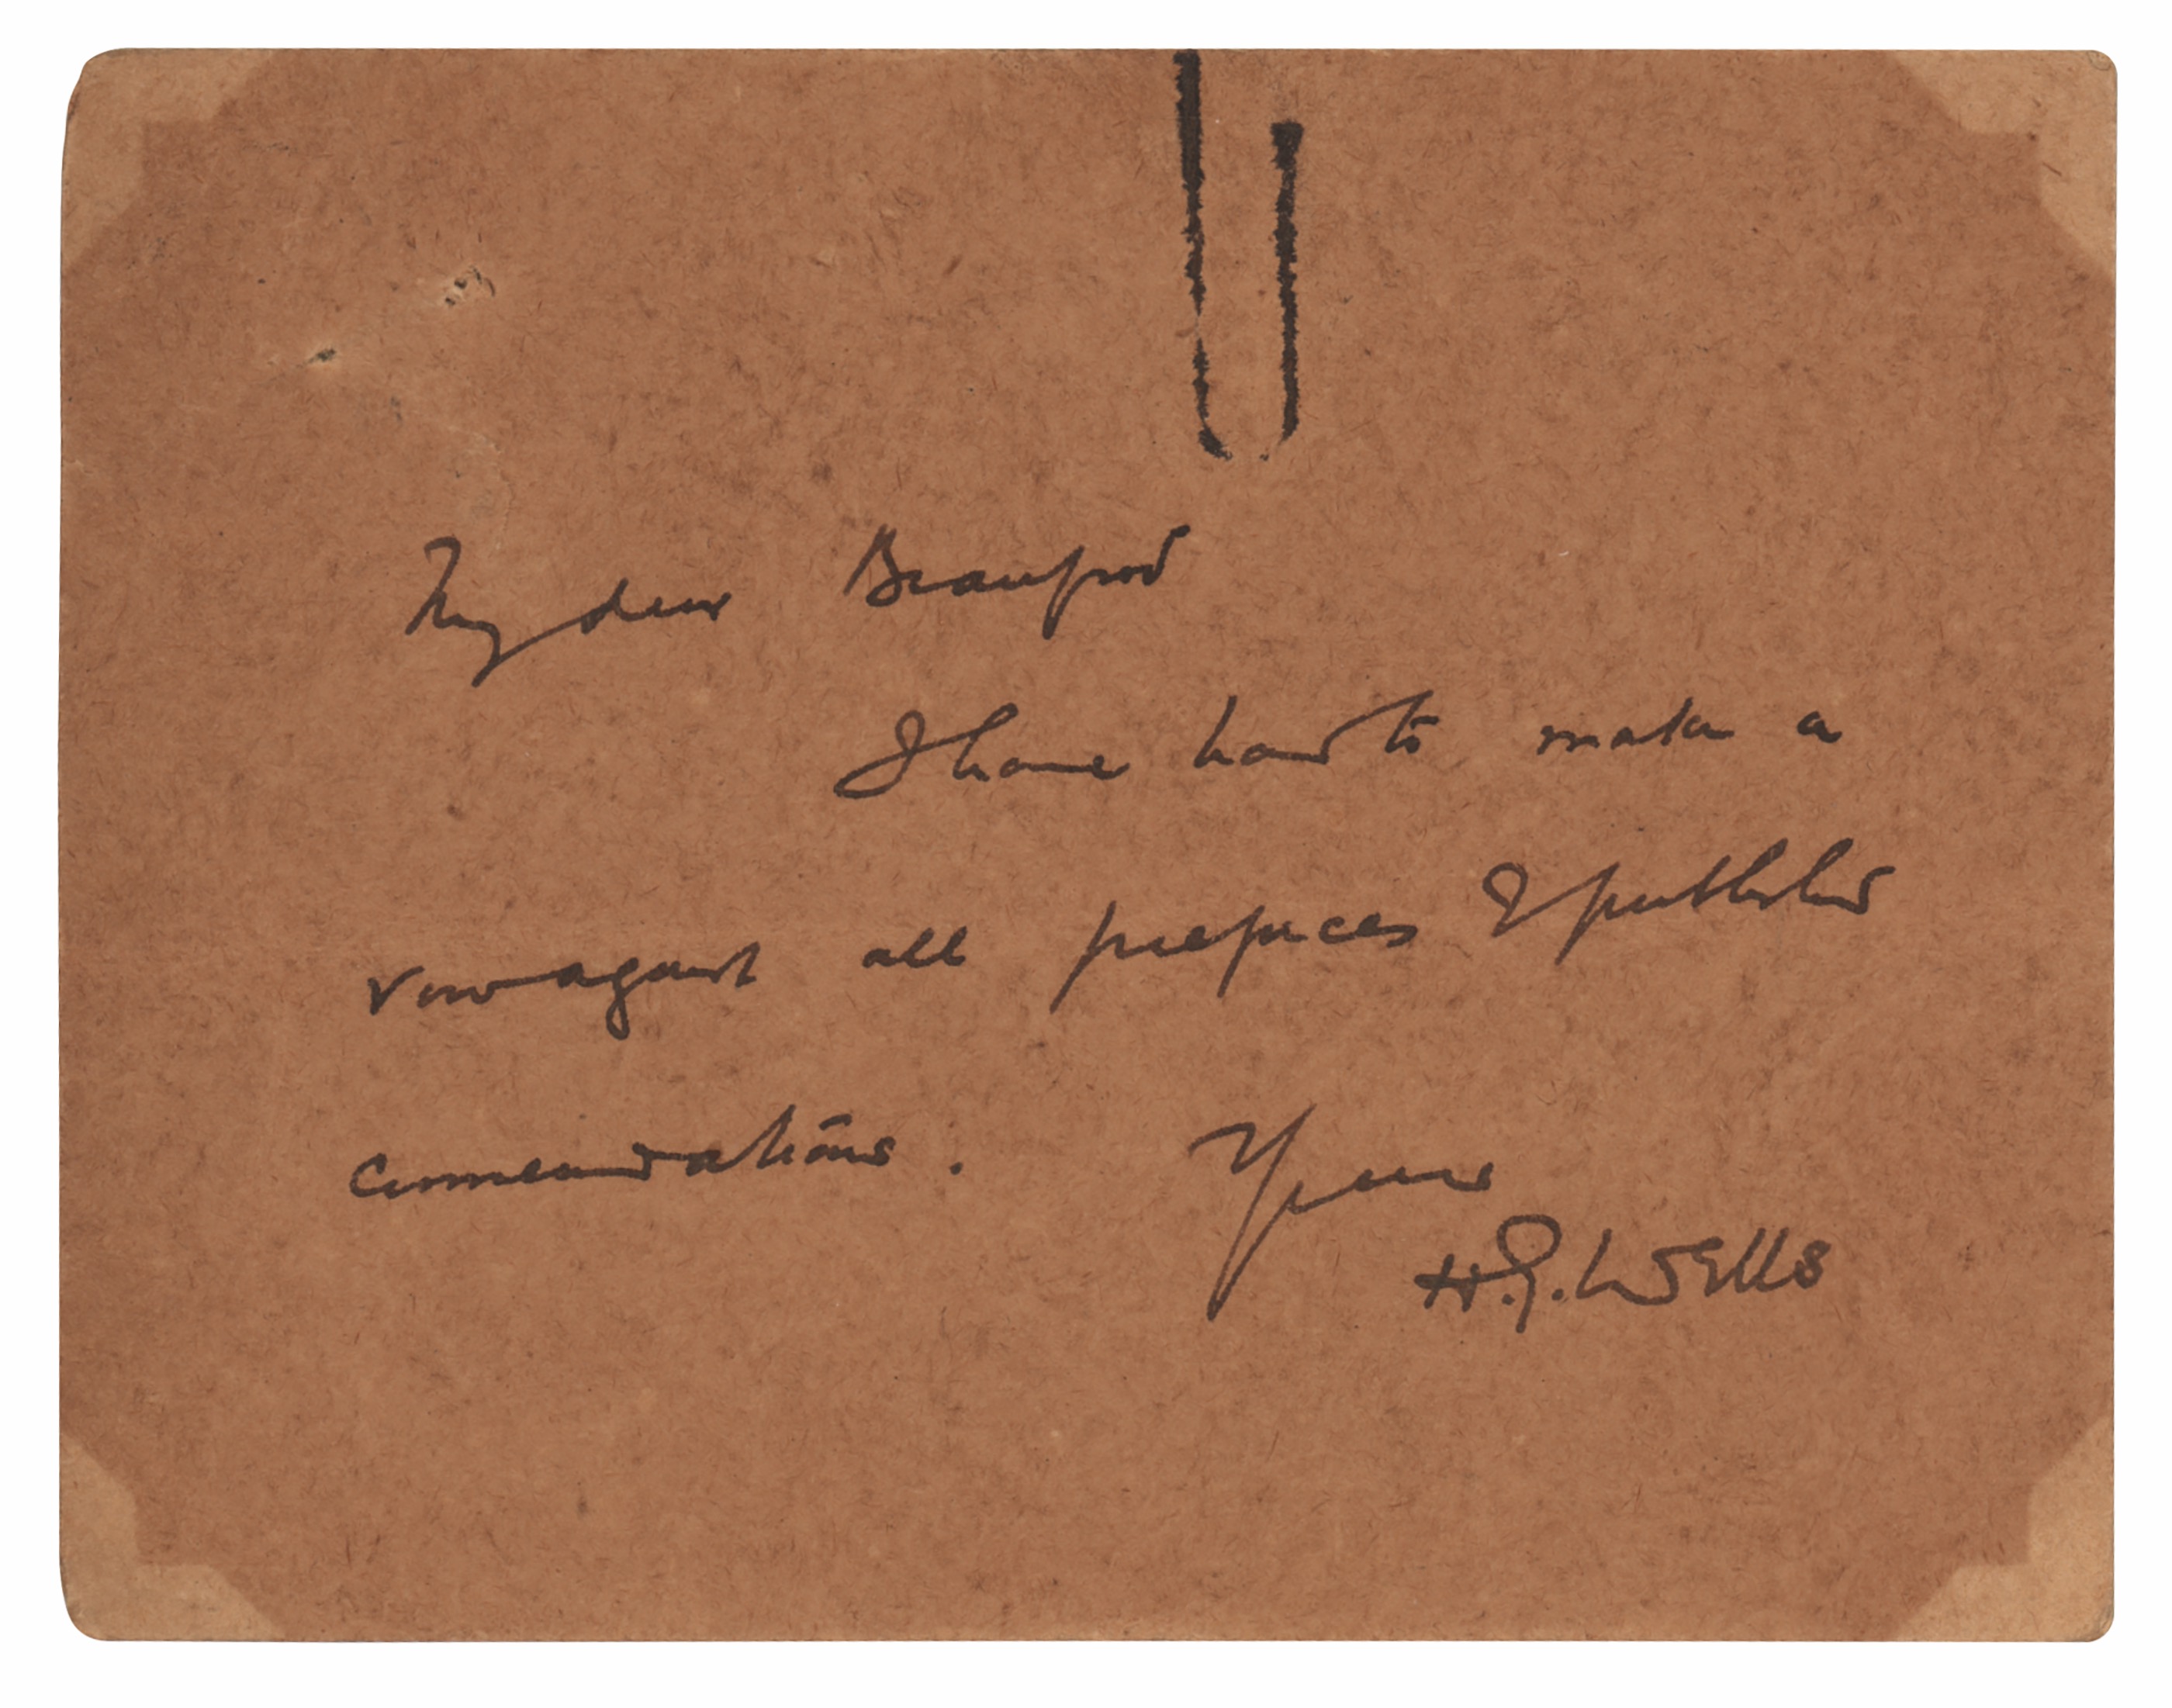 My dear Beaufort
I have had to make a
vow against all prefaces & published
commendations. Yours
H.G. Wells